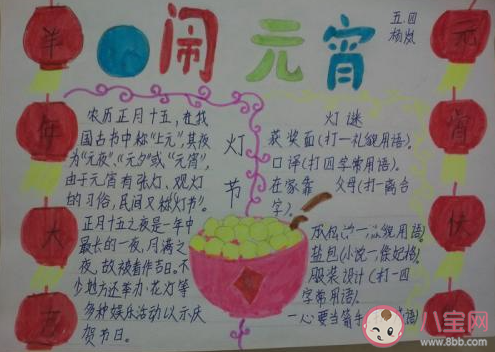 闹元宵
五.四
杨岚
农历正月十五，在我
国古书中称“上元”，其夜
为“元夜”、“元夕”或“元宵”，
由于元宵有张灯、观灯
的习俗，民间又称“灯节”。
正月十五之夜是一年中
最长的一夜，月满之
夜，故被看作吉日。不
少地方还举办花灯等
多种娱乐活动以示庆
贺节日。
灯节
灯谜
获奖面(打一礼貌用语)。
口译(打四字常用语)。
在家靠 父母(打一离合
字)。
服装设计(打一四
字常用语)。
一心要当箭手
八宝网
www.8bb.com